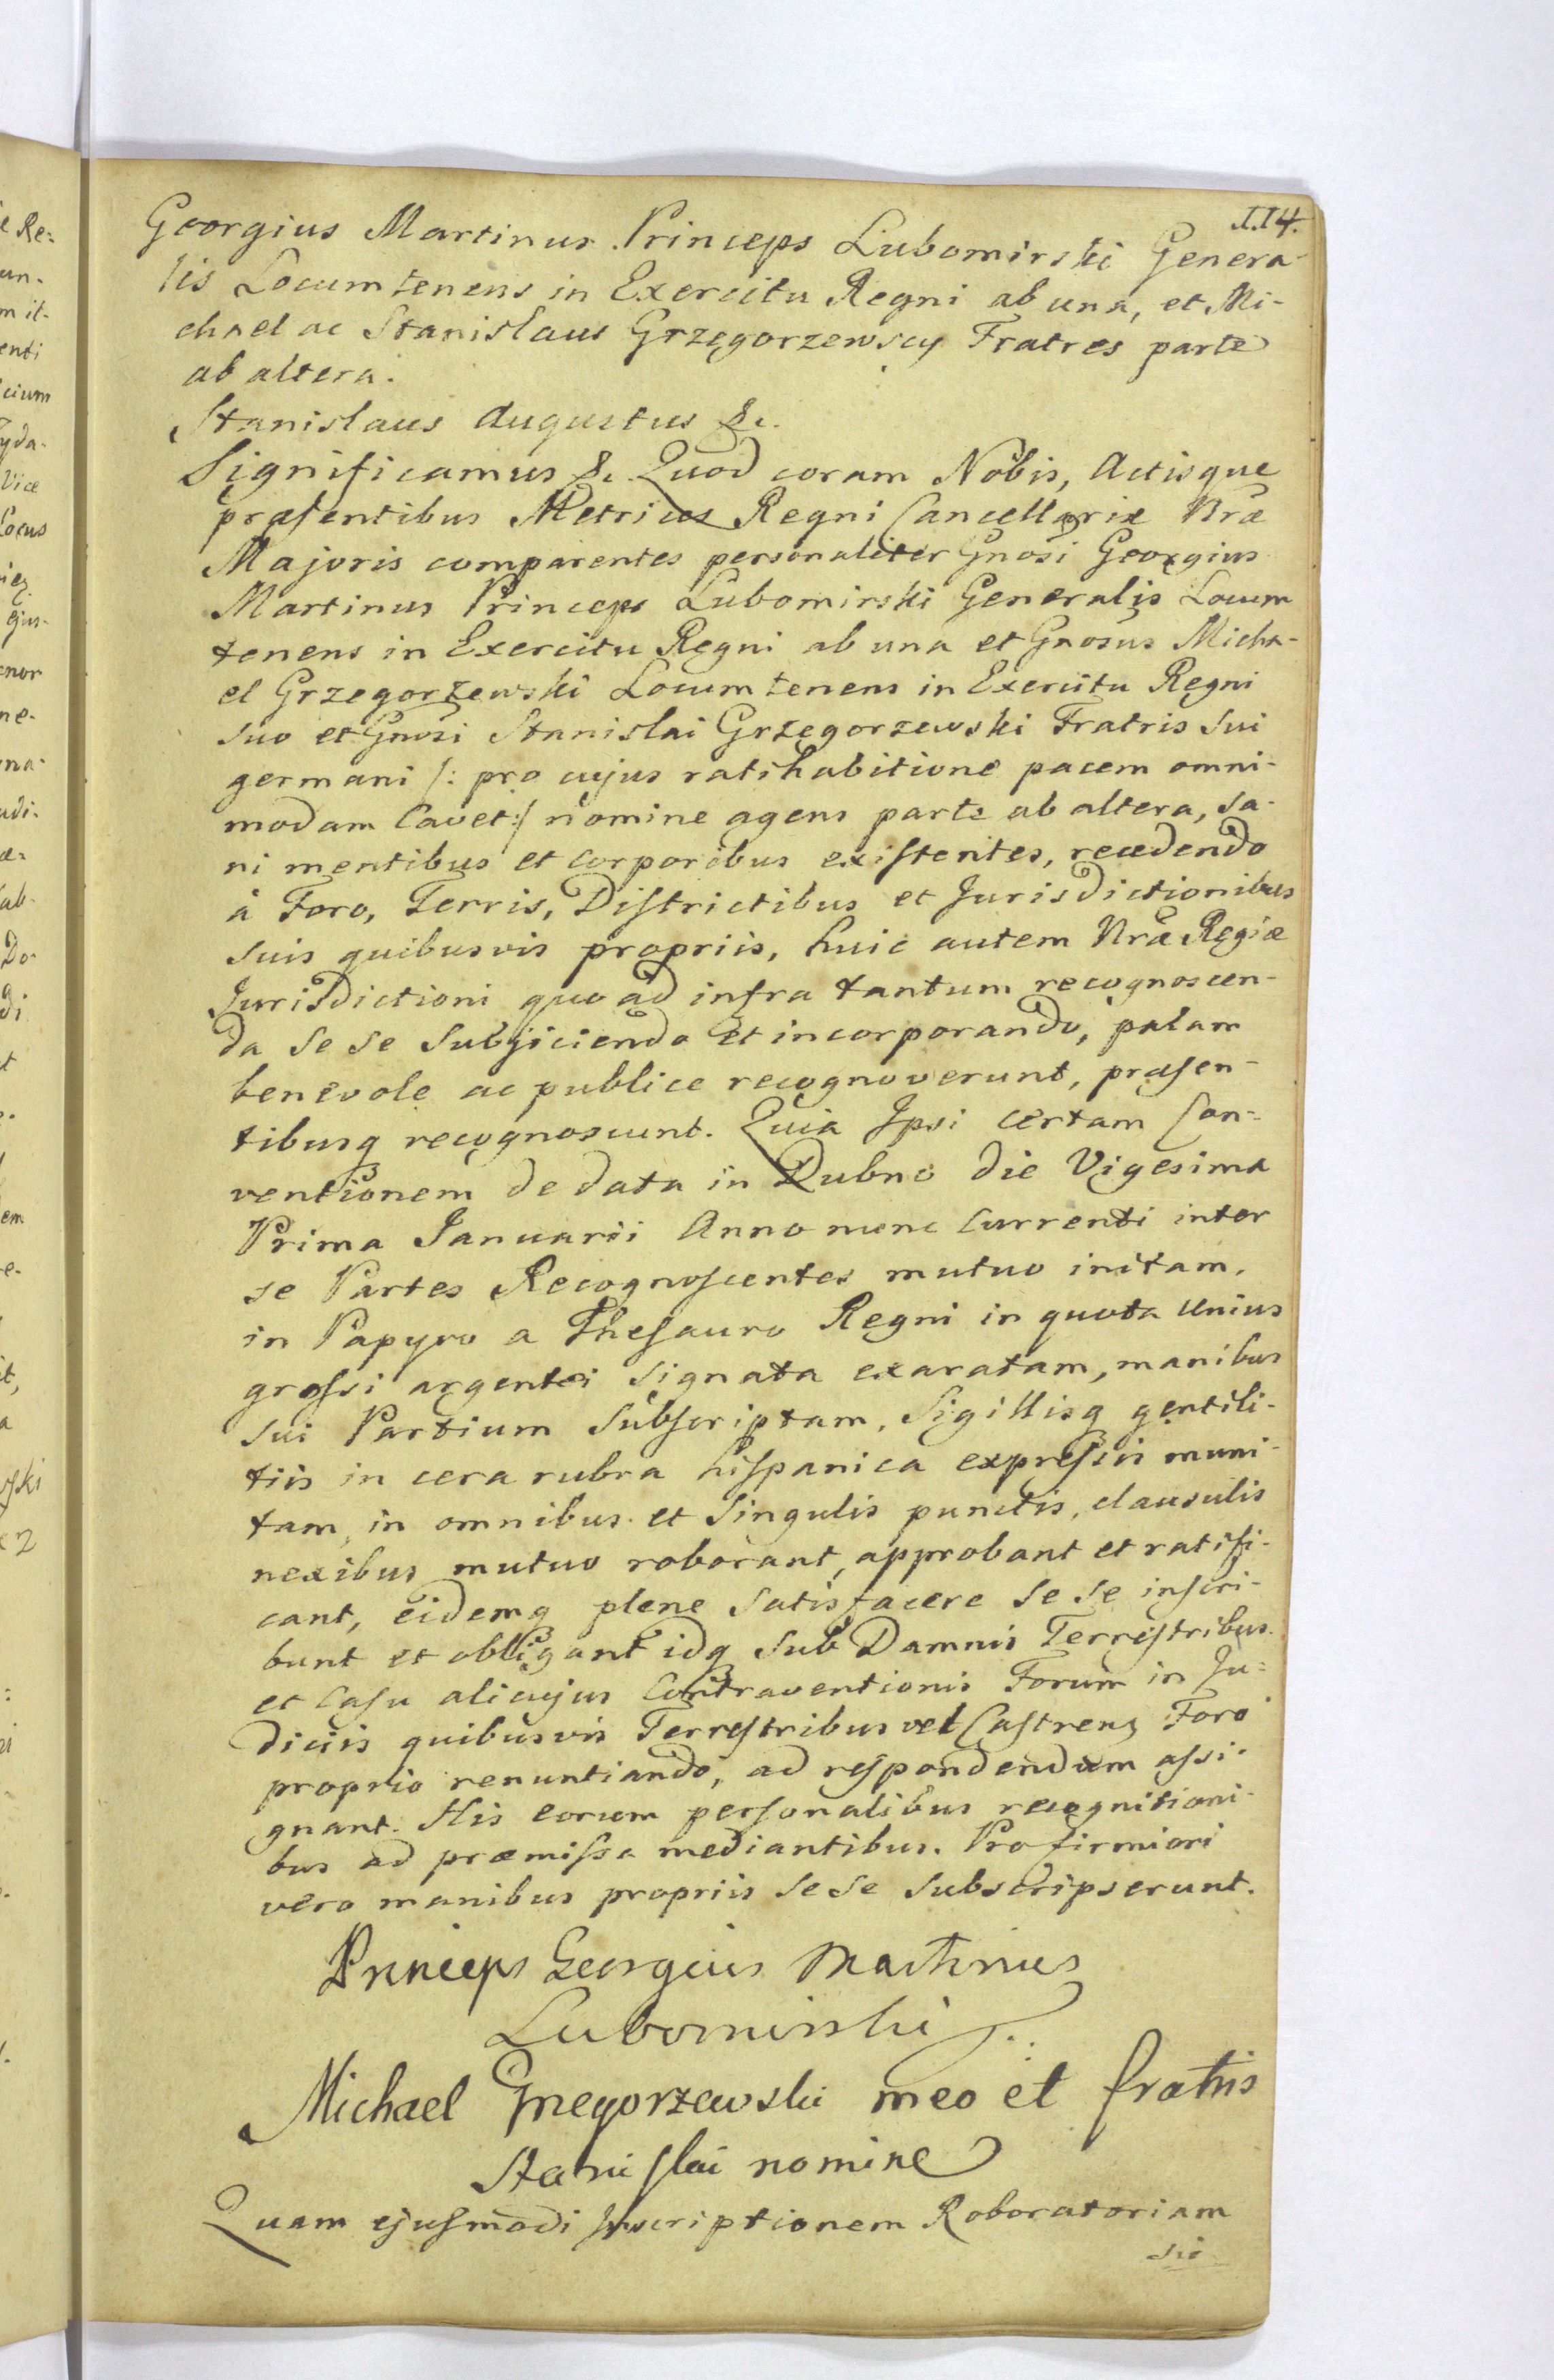 114.
Georgius Martinus Princeps Lubomirski Genera-
lis Locumtenens in Exercitu Regni ab una, et Mi-
chael ac Stanislaus Grzegorzewscy Fratres parte
ab altera.
Stanislaus Augustus &c.
Significamus &c. Quod coram Nobis, Actisque
præsentibus Metrices Regni Cancellariæ Nræ
Majoris comparentes personaliter Gnosi Georgius
Martinus Princeps Lubomirski Generalis Locum
tenens in Exercitu Regni ab una et Gnosus Micha-
el Grzegorzewski Locumtenens in Exercitu Regni
suo et Gnosi Stanislai Grzegorzewski Fratris sui
germani /: pro cujus ratihabitione pacem omni-
modam Cavet :/ nomine agens parte ab altera, sa-
ni mentibus et corporibus existentes, recedendo
à Foro, Terris, Districtibus et Jurisdictionibus
suis quibusvis propriis, huic autem Nræ Regiæ
Jurisdictioni quoad infra tantum recognoscen-
da sese subjiciendo et incorporando, palam
benevole ac publice recognoverunt, præsen-
tibusq recognoscunt. Quia Ipsi certam Con-
ventionem de data in Dubno die Vigesima
Prima Januarii Anno nunc Currenti inter
se Partes Recognoscentes mutuo initam,
in Papyro a Thesauro Regni in quota unius
grossi argentei signata exaratam, manibus
sui Partium Subscriptam, Sigillisq gentili-
tiis in cera rubra hispanica expressis muni-
tam, in omnibus et singulis punctis, clausulis
nexibus mutuo roborant, approbant et ratifi-
cant, eidemq plene satisfacere sese inscri-
bunt et obligant idq sub Damnis Terrestribus
et Casu alicujus Contraventionis Forum in Ju-
diciis quibusvis Terrestribus vel Castrens Foro
proprio renuntiando, ad respondendum assi-
gnant. His eorum personalibus recognitioni-
bus ad præmissa mediantibus. Pro firmiori
vero manibus propriis sese subscripserunt.
Princeps Georgius Martinus
Lubomirski
Michael Grzegorzewski meo et fratris
Stanislai nomine
Quam ejusmodi Inscriptionem Roboratoriam